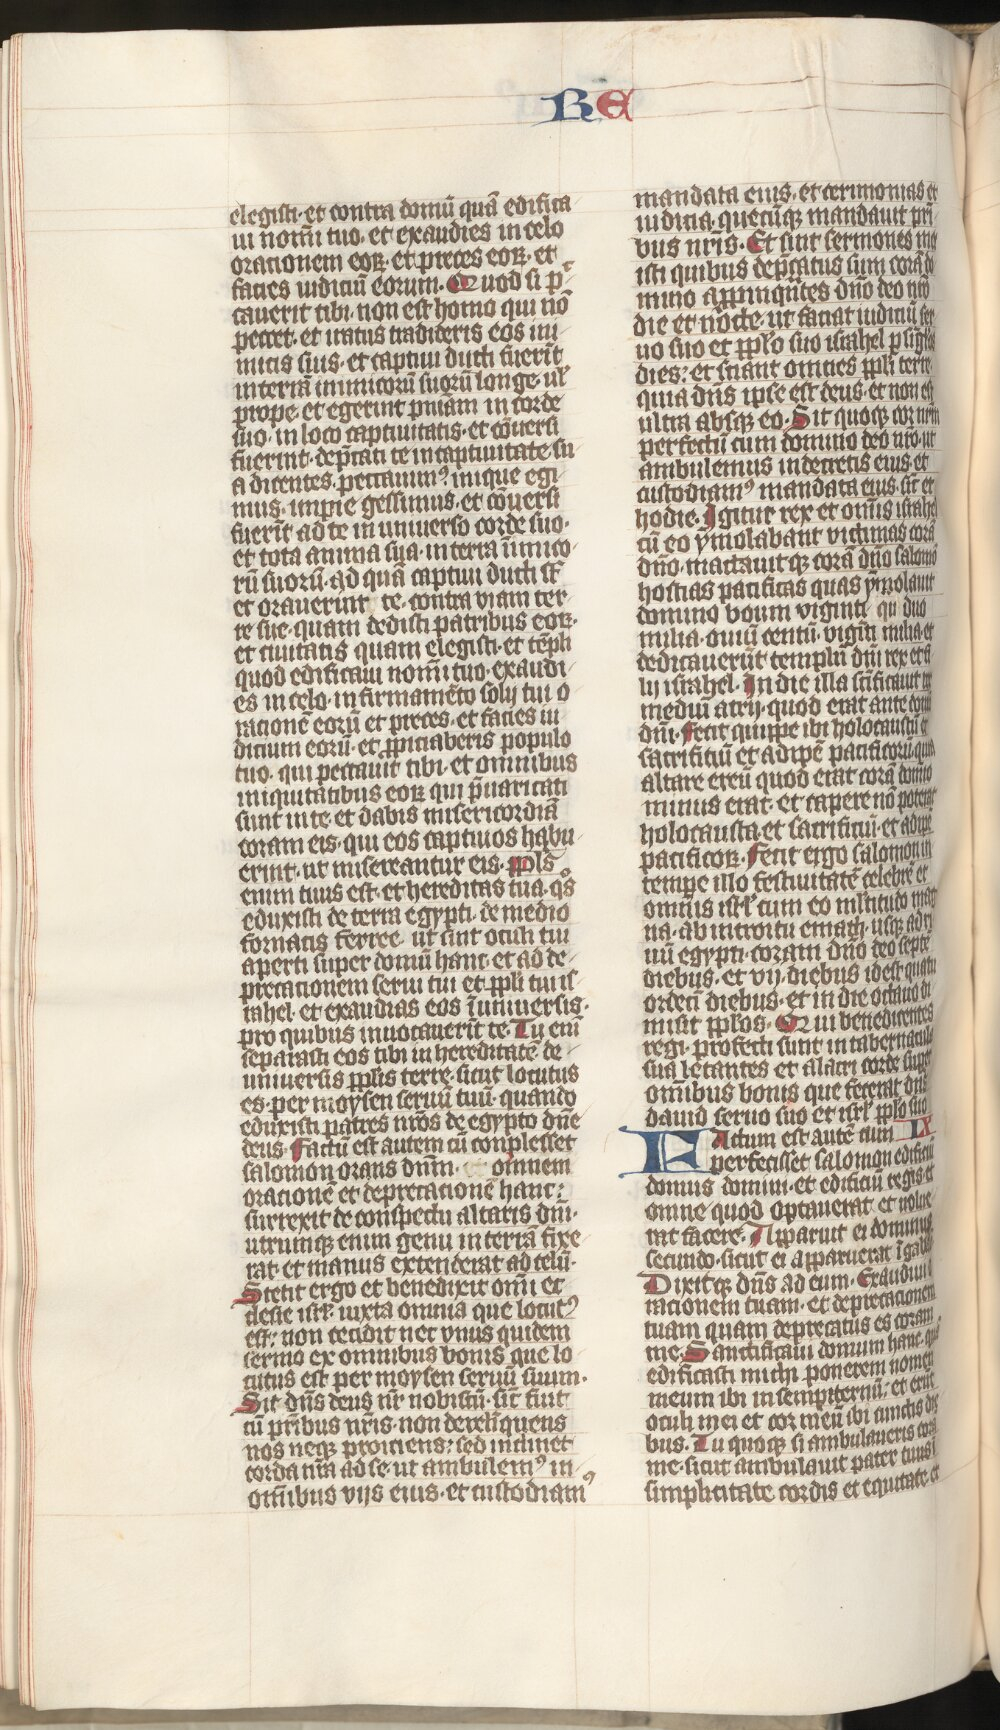 RE
elegisti· et contra domū quā edifica
ui nomī tuo· et exaudies in celo
orationem eoꝝ· et preces eoꝝ· et
facies iudiciū eorum· Quod si pec
cauerit tibi· non est homo qui nō
peccet· et iratus tradideris eos ini
micis suis· et captiui ducti fuerīt
in terrā inimicorū suoꝝ longe· ul'
prope· et egerint pniām in corde
suo· in loco captiuitatis· et cōuersi
fuerint· dep̄cati te in captiuitate su
a dicentes· peccauimꝰ inique egi
mus· impie gessimus· et cōuersi
fuerīt ad te in uniuerso corde suo·
et tota anima sua· in terra inimico
rū suorū· ad quā captiui ducti sūt
et orauerint te· contra viam ter
re sue· quam dedisti patribus eoꝝ·
et ciuitatis quam elegisti· et tēpli
quod edificaui nomī tuo· exaudi
es in celo· in firmamēto solij tui o
rationē eorū et preces· et facies iu
dicium eorū· et ꝓpiciaberis populo
tuo· qui peccauit tibi· et omnibus
iniquitatibus eoꝝ qui p̄uaricati
sunt in te· et dabis misericordiā
coram eis· qui eos captiuos habu
erint· ut misereantur eis· ppl's
enim tuus est· et hereditas tua· q̄s
eduxisti de terra egypti· de medio
fornacis ferree· ut sint oculi tui
aperti super domū hanc· et ad de
precationem serui tui et ppli tui is
rahel· et exaudias eos ī uniuersis·
pro quibus inuocauerīt te· Tu enī
separasti eos tibi in hereditatē· de
uniuersis pplis terre· sicut locutus
es· per moysen seruū tuū· quando
eduxisti patres nr̄os de egypto dn̄e
deus· Factū est autem cū conplesset
salomon orans dnm̄· et omnem
orationē et deprecationē hanc:
surrexit de conspectu altaris dn̄i·
utrumqꝫ enim genu in terrā fixe
rat· et manus extenderat ad celū·
Stetit ergo et benedixit om̄i ec
clesie isrl'· iuxta omnia que locutꝰ
est: non cecidit nec vnus quidem
sermo ex omnibus bonis que lo
cutus est per moysen seruū suum·
Sit dn̄s deus nr̄ nobiscū· sic̄ fuit
cū pr̄ibus nr̄is· non derelīquens
nos neqꝫ proiciens: sed inclinet
corda nr̄a ad se· ut ambulemꝰ in
om̄ibus vijs eius· et custodiamꝰ
mandata eius· et cerimonias et
iudicia· quecūqꝫ mandauit pri
bus nr̄is· Et sint sermones mei
isti quibus dep̄catus sum corā do
mino appinqn̄tes dn̄o deo nr̄o
die et nocte· ut faciat iudiciū ser
uo suo et pplo suo israhel p sīgl'os
dies: et sciant omnes ppli terre·
quia dn̄s ipse est deus· et non est
ultra absqꝫ eo· Sit quoqꝫ cor nrm̄
perfectū cum domino deo nr̄o· ut
ambulemus in decretis eius· et
custodiamꝰ mandata eius· sic̄ et
hodie· Igitur rex et om̄is israhel
cū eo ymolabant victimas corā
dn̄o· mactauitqꝫ corā dn̄o salomō
hostias pacificas quas ymolauit
domino boum viginti qu duo
milia· ouiū centū· viginti milia· et
dedicauerūt templū dn̄i rex et fi
lij israhel· In die illa sc̄ificauit rex
mediū atrij· quod erat ante domū
dn̄i· Fecit quippe ibi holocaustū et
sacrificiū et adipē pacificorū· quia
altare ereū quod erat corā domino
minus erat· et capere nō poterat
holocausta et sacrificiū· et adipē
pacificoꝝ· Fecit ergo salomon in
tempe illo festiuitatē celebrē et
omnis isrl' cum eo ml'titudo mag
na· ab introitu emath· usqꝫ ad ri
uū egypti· coram dn̄o deo septē
diebus· et vij· diebus idest quatu
ordeci diebus· et in die octauo di
misit pplos· Qui benedicentes
regi· profecti sunt in tabernacula
sua letantes et alacri corde super
om̄ibus bonis que fecerat dn̄s
dauid seruo suo et isrl' pplo suo
Factum est autē cum IX
perfecisset salomon edificiū
domus domini· et edificiū regis· et
omne quod optauerat et uolue
rat facere· Apparuit ei dominus
secundo· sicut ei apparuerat ī gabaō·
Dixitqꝫ dn̄s ad eum· Exaudiui
rationem tuam· et deprecationem
tuam quam deprecatus es coram
me· Sanctificaui domum hanc quā
edificasti michi ponerem nomen
meum ibi in sempiternū· et erūt
oculi mei et cor meū ibi cunctis die
bus· Tu quoqꝫ si ambulaueris corā
me· sicut ambulauit pater tuus ī
simplicitate cordis et equitate· et